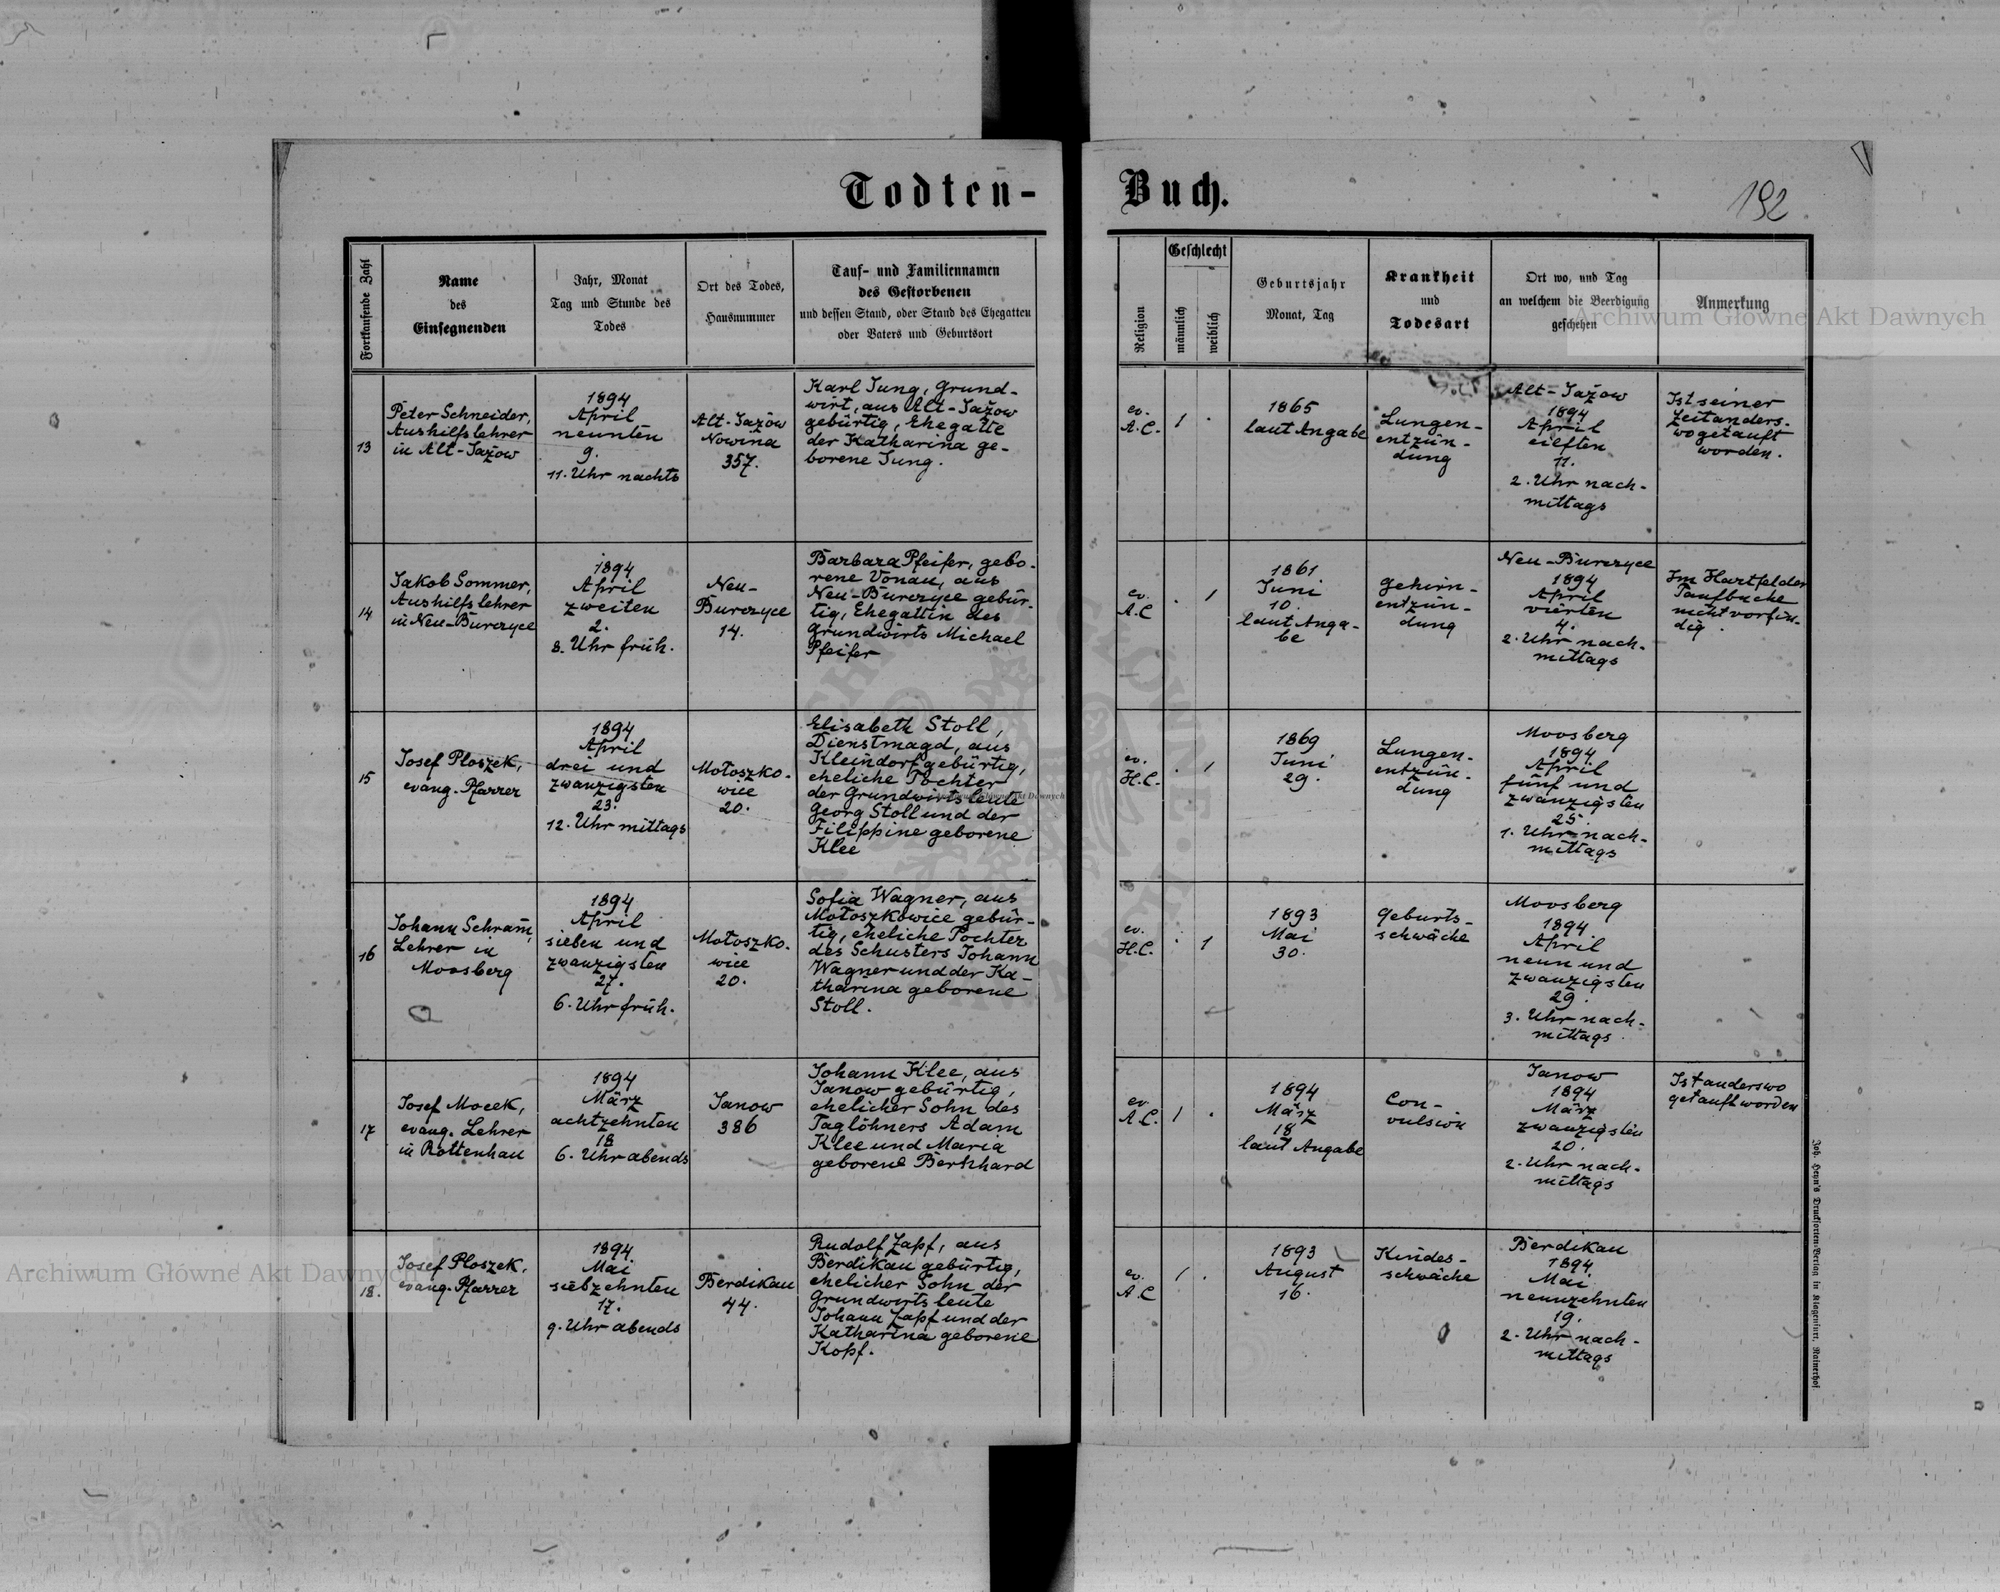 Todten-Buch.
192
Fortlaufende Zahl
Name
des
Einsegnenden
Jahr, Monat
Tag und Stunde des
Todes
Ort des Todes,
Hausnummer
Tauf- und Familiennamen
des Gestorbenen
und dessen Stand, oder Stand des Ehegatten
oder Vaters und Geburtsort
Religion
Geschlecht
männlich
weiblich
Geburtsjahr
Monat, Tag
Krankheit
und
Todesart
Ort wo, und Tag
an welchem die Beerdigung
geschehen
Anmerkung
13
Peter Schneider,
Aushilfslehrer
in Alt-Jažow
1894
April
neunten
9.
11. Uhr nachts
Alt-Jažow
Nowina
357.
Karl Jung, Grund-
wirt, aus Alt-Jažow
gebürtig, Ehegatte
der Katharina ge-
borene Jung.
ev.
A.C.
1 .
1865
laut Angabe
Lungen-
entzün-
dung
Alt-Jažow
1894
April
eilften
11.
2. Uhr nach-
mittags
Ist seiner
Zeit anders-
wo getauft
worden.
14
Jakob Sommer,
Aushilfslehrer
in Neu-Burczyce
1894
April
zweiten
2.
8. Uhr früh.
Neu-
Burczyce
14.
Barbara Pfeifer, gebo-
rene Vonau, aus
Neu-Burczyce gebür-
tig, Ehegattin des
Grundwirts Michael
Pfeifer
ev.
A.C
. 1
1861
Juni
10.
laut Anga-
be
Gehirn-
entzün-
dung
Neu-Burczyce
1894
April
vierten
4.
2. Uhr nach-
mittags
Im Hartfelder
Taufbuche
nicht vorfin-
dig.
15
Josef Ploszek,
evang. Pfarrer
1894
April
drei und
zwanzigsten
23.
12. Uhr mittags
Motoszko-
wice
20.
Elisabeth Stoll,
Dienstmagd, aus
Kleindorf gebürtig,
eheliche Tochter
der Grundwirtsleute
Georg Stoll und der
Filippine geborene
Klee
ev.
H.C.
. 1
1869
Juni
29.
Lungen-
entzün-
dung
Moosberg
1894
April
fünf und
zwanzigsten
25.
1. Uhr nach-
mittags
16
Johann Schram,
Lehrer in
Moosberg
1894
April
sieben und
zwanzigsten
27.
6. Uhr früh.
Motoszko-
wice
20.
Sofia Wagner, aus
Motoszkowice gebür-
tig, eheliche Tochter
des Schusters Johann
Wagner und der Ka-
tharina geborene
Stoll.
ev.
H.C.
. 1
1893
Mai
30.
Geburts-
schwäche
Moosberg
1894
April
neun und
zwanzigsten
29.
3. Uhr nach-
mittags
17
Josef Mocek,
evang. Lehrer
in Rottenhau
1894
März
achtzehnten
18
6. Uhr abends
Janow
386
Johann Klee, aus
Janow gebürtig,
ehelicher Sohn des
Taglöhners Adam
Klee und Maria
geborene Bernhard
ev.
A.C.
1 .
1894
März
18
laut Angabe
Con-
vulsion
Janow
1894
März
zwanzigsten
20.
2. Uhr nach-
mittags
Ist anderswo
getauft worden
18.
Josef Ploszek,
evang. Pfarrer
1894
Mai
siebzehnten
17.
9. Uhr abends
Berdikau
44.
Rudolf Zapf, aus
Berdikau gebürtig,
ehelicher Sohn der
Grundwirtsleute
Johann Zapf und der
Katharina geborene
Kopf.
ev.
A.C
1 .
1893
August
16.
Kindes-
schwäche
Berdikau
1894
Mai
neunzehnten
19.
2. Uhr nach-
mittags
Joh. Heyn's Drucksorten-Verlag in Klagenfurt, Rainerhof
Archiwum Główne Akt Dawnych
Archiwum Główne Akt Dawnych
Archiwum Główne Akt Dawnych